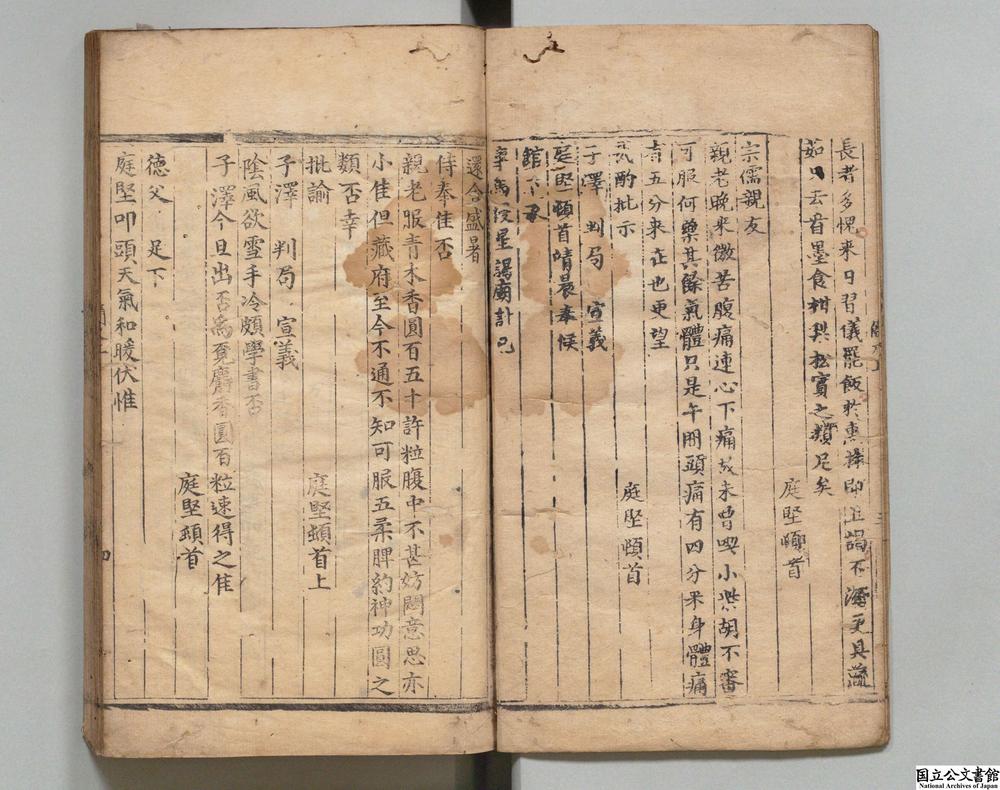 長者多愧来日習儀罷飯於惠林即上謁不
更具蔬
茹只去首墨食柑
松實之類足矣
庭堅頓首
宗儒親友
親老晚来微苦腹痛連心下痛故未曾喫小柴胡不審
可服何藥其餘氣體只是午間頭痛有四分来身體痛
有五分来在也更望
酌批示
庭堅頓首
子澤 判局 宣義
庭堅頓首晴晨奉候
館下
謁廟計已
還合盛暑
侍奉佳否
親老服青木香圓百五十許粒腹中不甚妨悶意思亦
小佳但藏府至今不通不知可服五柔脾約神功圓之
類否幸
批諭
庭堅頓首上
子澤 判局 宣義
陰風欲雪手冷頗學書否
子澤今旦出否為覓麝香圓百粒速得之佳
庭堅頓首
德父 足下
庭堅叩頭天氣和暖伏惟
国立公文書館
National Archives of Japan